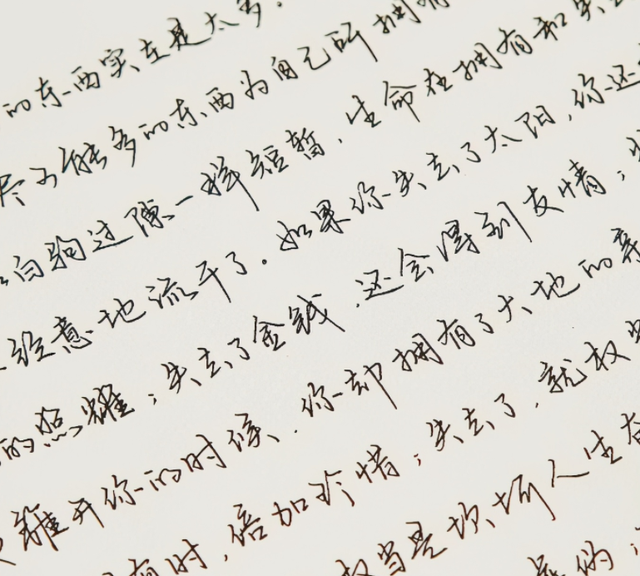 的东西实在是太多.
尽可能多的东西为自己所拥有
白驹过隙一样短暂,生命在拥有和失去
经意地流干了.如果你失去了太阳,你还
的照耀;失去了金钱,还会得到友情;当
离开你的时候,你却拥有了大地的亲
有时,倍加珍惜;失去了,就权当
权当是坎坷人生